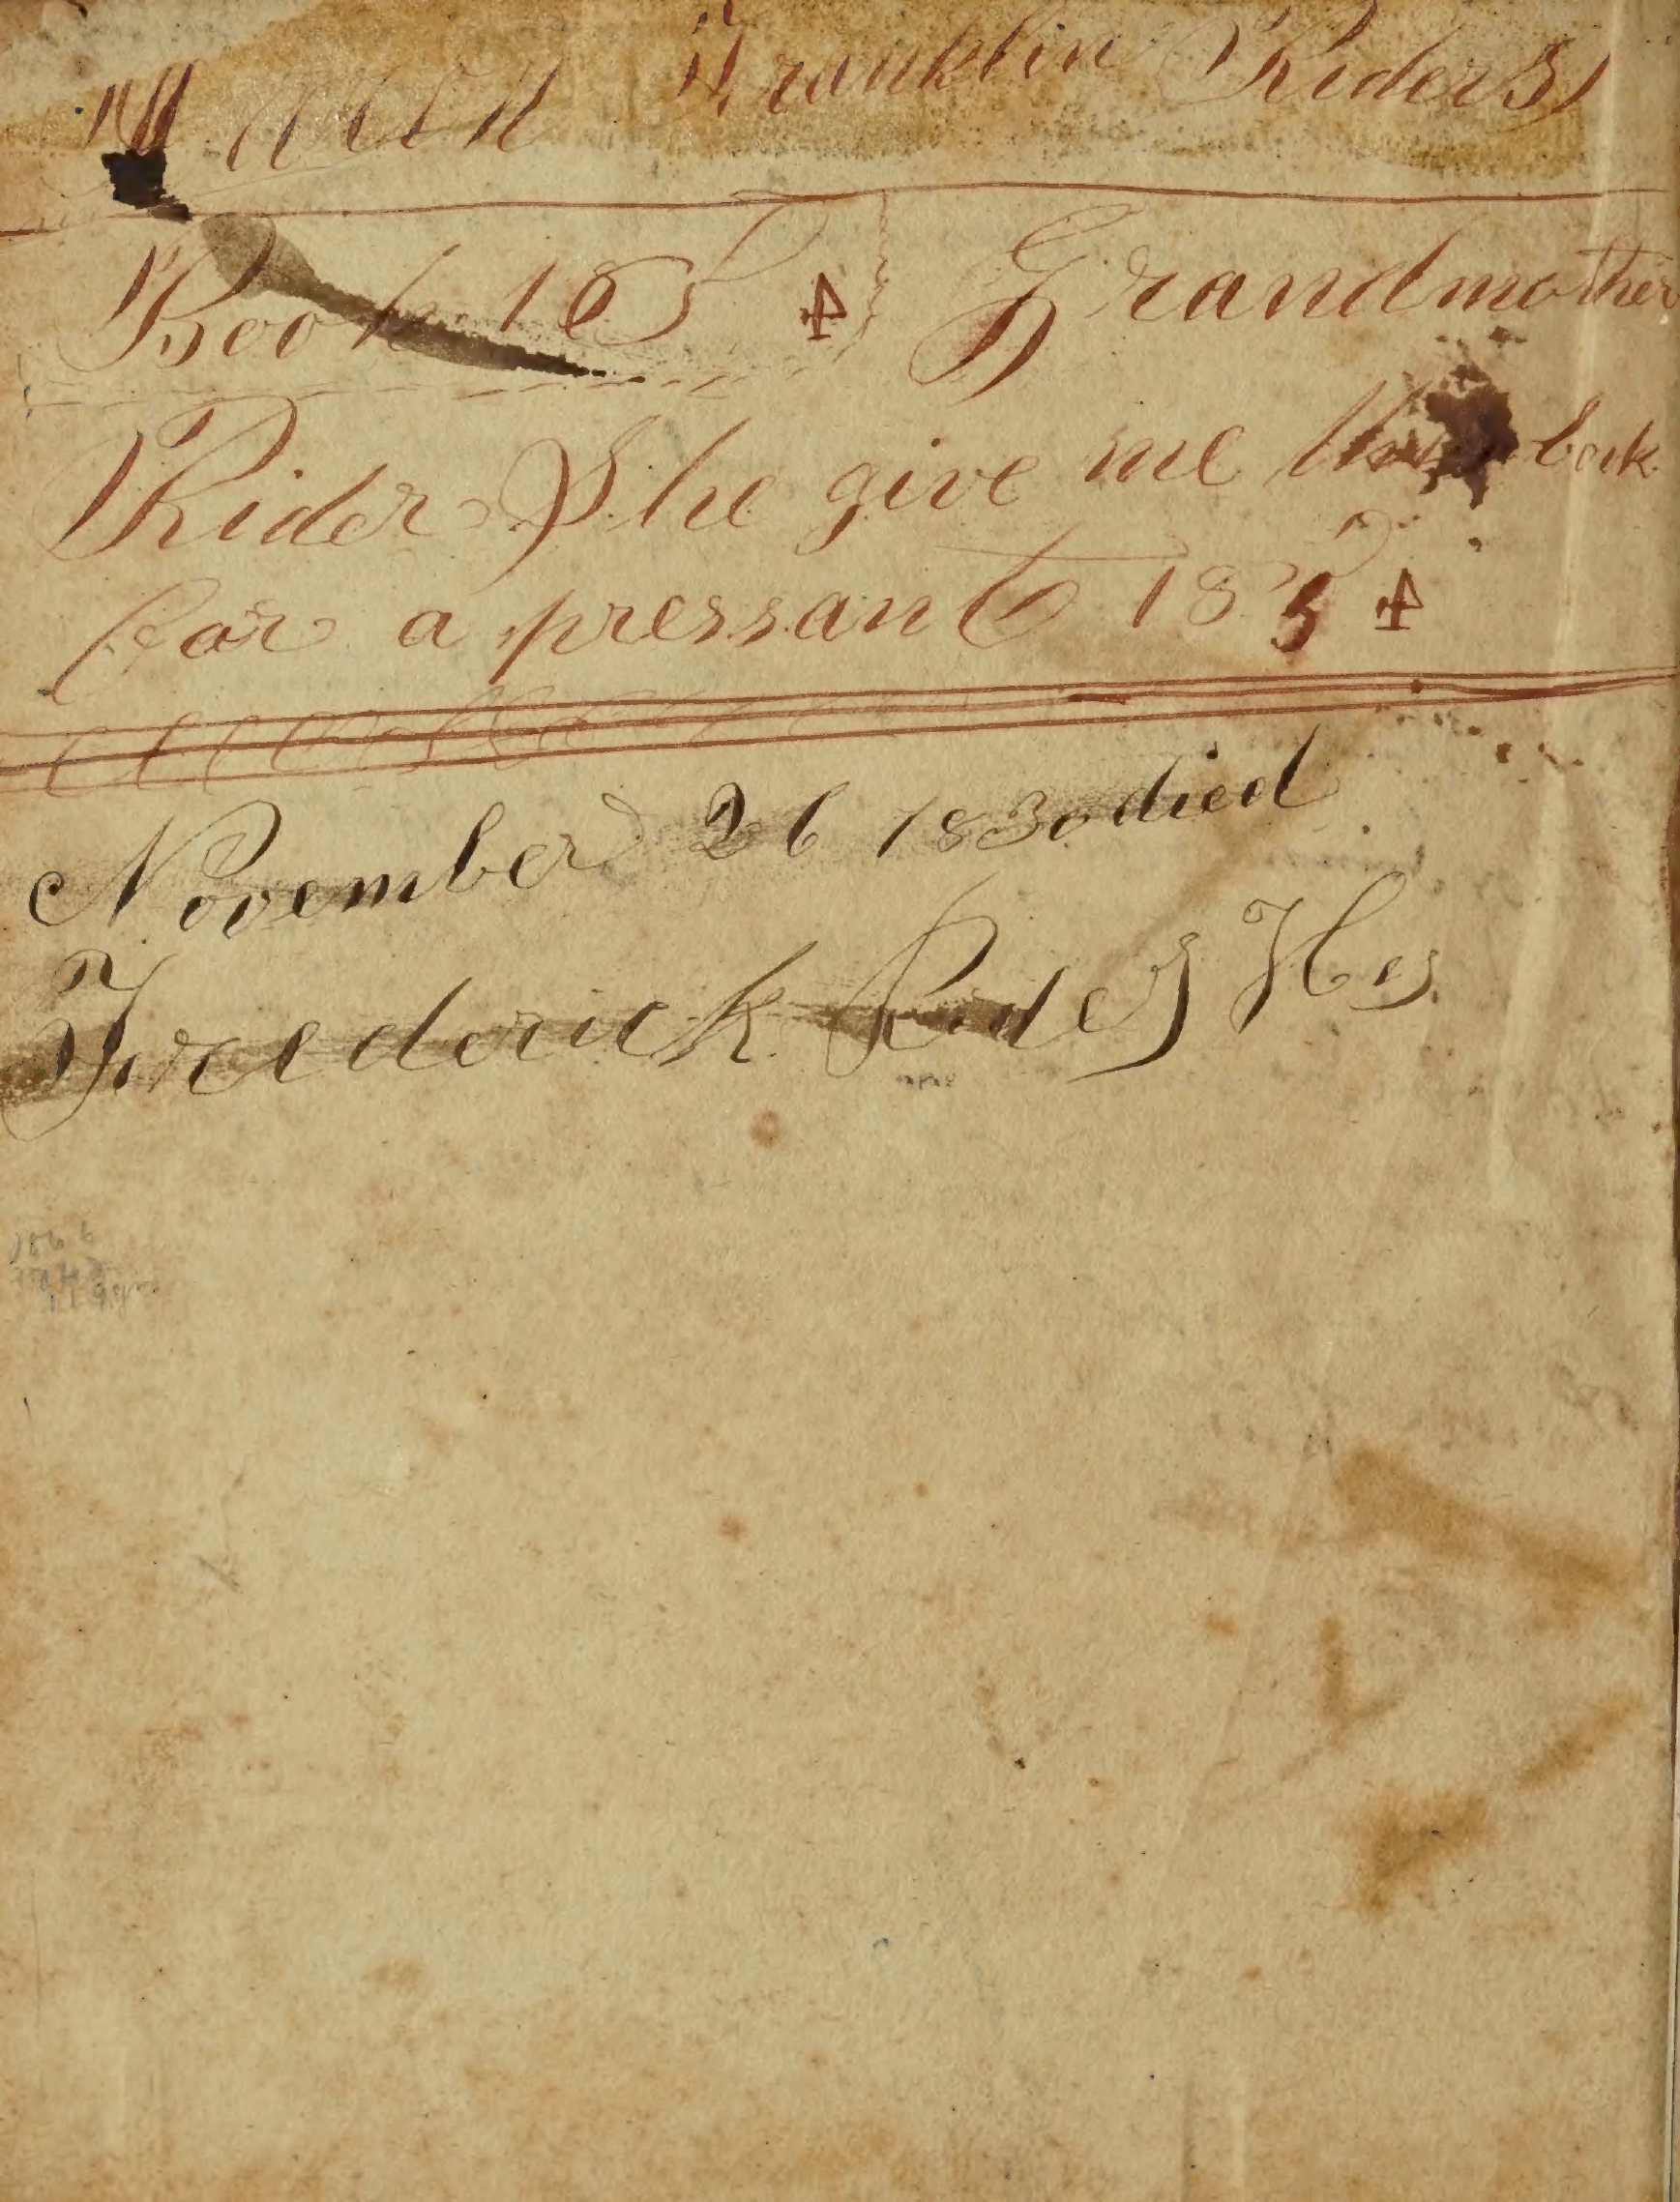 Franklin Riders
Book 1854 Grandmother
Rider She give me this book
for a pressant 1854
November 26 1830 died
Frederick Rider
1866